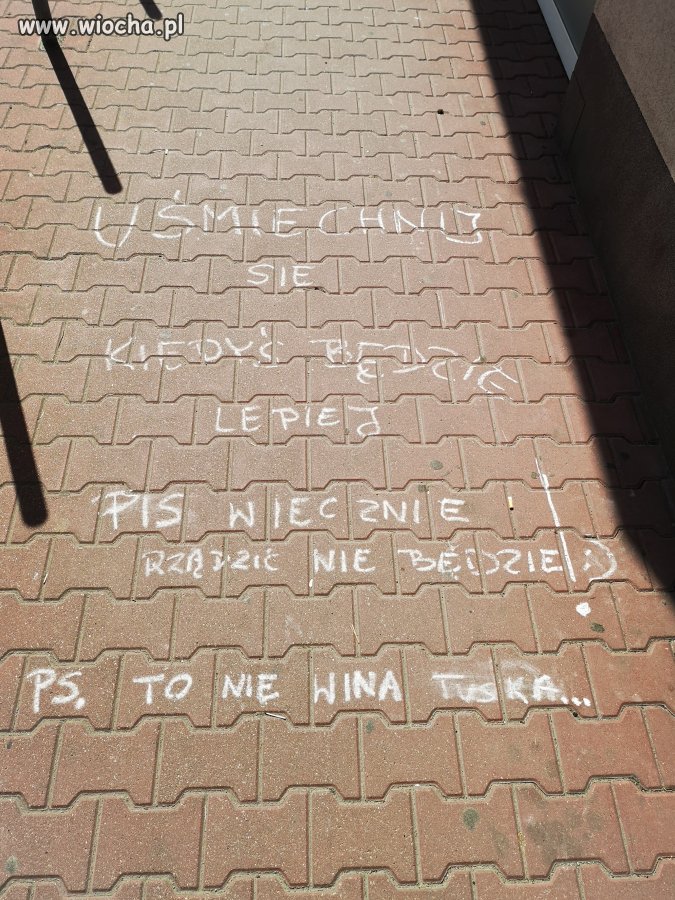 www.wiocha.pl
UŚMIECHNIJ
SIE
KIEDYŚ BĘDZIE
LEPIEJ
PIS WIECZNIE
RZĄDZIĆ NIE BĘDZIE! :)
PS. TO NIE WINA TUSKA...